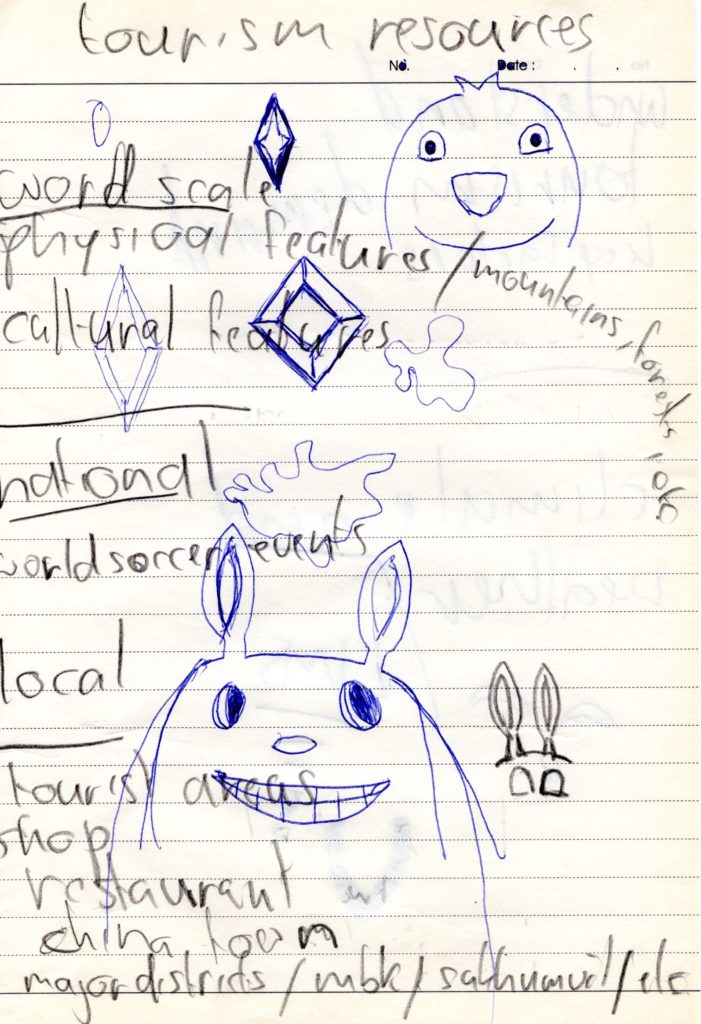 tourism resources
No. Date :
word scale
physical features / mountains, forests
cultural features
national
world sorccer events
local
tourist areas
shop
restaurant
china town
major districts / mbk / sukhumvit / etc